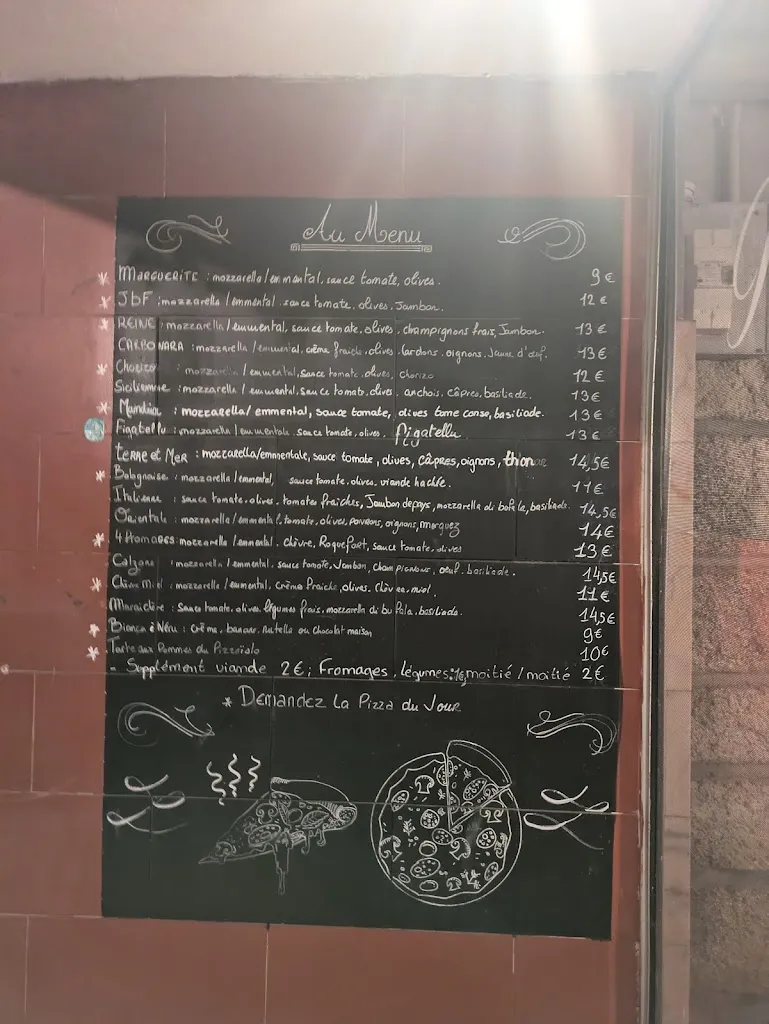 Au Menu
* MARGUERITE : mozzarella / emmental, sauce tomate, olives. 9€
* JbF : mozzarella / emmental, sauce tomate, olives, Jambon. 12€
* REINE : mozzarella / emmental, sauce tomate, olives, champignons frais, Jambon. 13€
CARBONARA : mozzarella / emmental, crème fraiche, olives, lardons, oignons, Jaune d'œuf. 13€
* Chorizo : mozzarella / emmental, sauce tomate, olives, chorizo 12€
Sicilienne : mozzarella / emmental, sauce tomate, olives, anchois, câpres, basiliade. 13€
* : mozzarella / emmental, sauce tomate, olives tome corse, basiliade. 13€
Figatellu : mozzarella / emmentale, sauce tomate, olives, Figatellu 13€
TERRE et MER : mozzarella/emmentale, sauce tomate, olives, câpres, oignons, thon 14,5€
* Bolognaise : mozzarella / emmental, sauce tomate, olives, viande hachée. 11€
Italienne : sauce tomate, olives, tomates fraîches, Jambon de pays, mozzarella di bufala, basiliade. 14,5€
Orientale : mozzarella / emmental, tomate, olives, poivrons, oignons, merguez 14€
* 4 Fromages : mozzarella / emmental, chèvre, Roquefort, sauce tomate, olives 13€
Calzone : mozzarella / emmental, sauce tomate, Jambon, champignons, œuf, basiliade. 14,5€
* Chèvre Miel : mozzarella / emmental, Crème fraiche, olives, Chèvre, miel. 11€
Maraichère : Sauce tomate, olives, légumes frais, mozzarella di bufala, basiliade. 14,5€
* Bianca è Neru : Crème, banane, Nutella ou Chocolat maison 9€
* Tarte aux Pommes du Pizzaiolo 10€
- Supplément viande 2€; Fromages, légumes: 1€, moitié / moitié 2€
* Demandez La Pizza du Jour